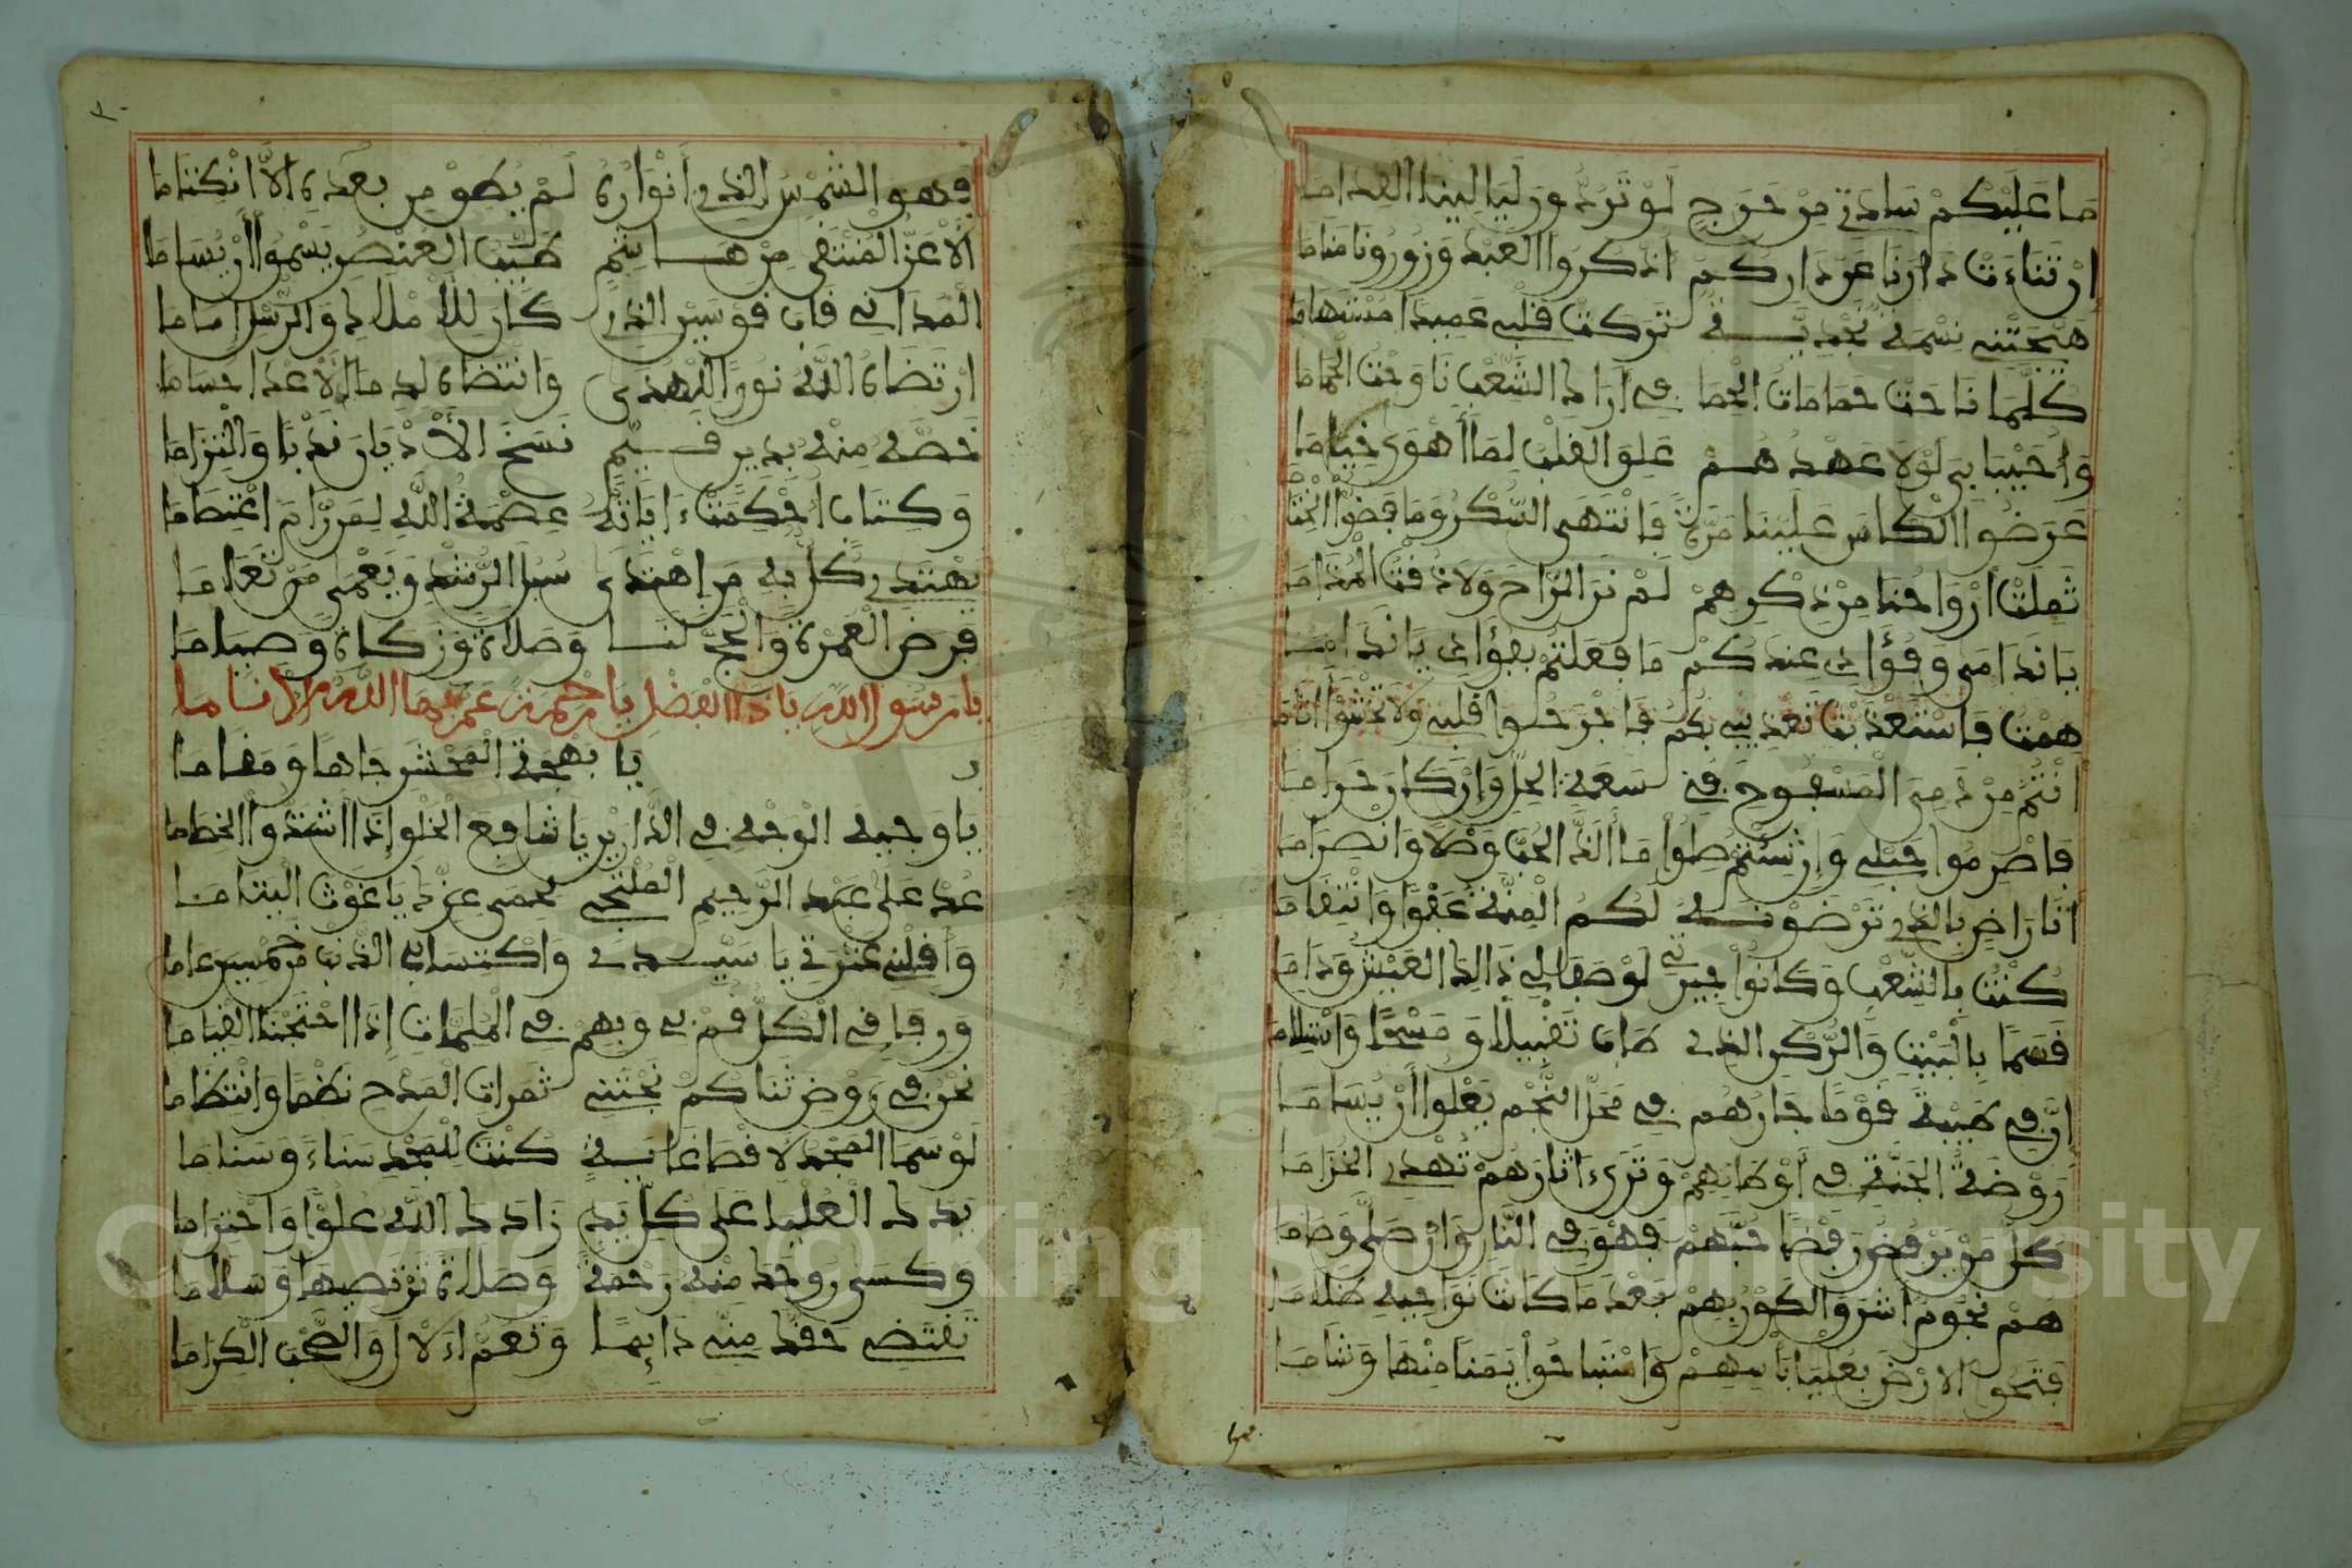 ما عليكم سادتي من حرج لو تردون ليالينا القداما
ان تناءت دارنا عن داركم اذكروا العهد وزورونا مناما
هيجتني نسمة نجدية تركت قلبي عميدا مستهاما
كلما ناحت حمامات الحما في أراك الشعب ناوحت الحماما
وأحيبابي لولا عهدهم علو القلب لما أهوى خياما
عرضوا الكاس علينا مرة فانتهى السكر وما فضوا الختا
ثملت أرواحنا من ذكرهم لم نر الراح ولا ذقت المداما
يا نداما وفؤادي عندكم ما فعلتم بفؤادي يا نداما
همت فاستعذبت تعذيبي بكم فاجرحوا قلبي ولا تخشوا اثاما
انتم من دمي المسفوح في سعة الحل وإن كان حراما
فاصرموا حبلي وإن شئتم صلوا ما ألذ الحب وصلا وانصراما
انا راض بالذي ترضونه لكم المنة عفوا وانتقاما
كنت بالشعب وكانوا جيرتي لو صفا لي ذاك العيش وداما
قسما بالبيت والركن الذي طاب تقبيلا ومسحا واستلاما
إن في طيبة قوما جارهم في محل النجم يعلوا أن يساما
روضة الجنة في أوطانهم وترى ءاثارهم تهدي الخزاما
كل من يرفض رفضا حبهم فهو في النار وإن صلى وصاما
هم نجوم اشرق الكون بهم بعد ما كانت نواحيه ظلاما
فتحوا الارض بعليا بأسهم واستباحوا يمنا منها وشاما
١٩
٢٠
فهو الشمس الذي أنواره لم يطق من بعده الا انكتاما
الأعز المنتقى من هاشم طيب العنصر يسموا أن يساما
المداني قاب قوسين الذي كان للاملاك والرسل إماما
ارتضاه الله نورا للهدى وانتضاه لدم الاعدا حساما
خصه منه بدين قيم نسخ الأديان ندبا والتزاما
وكتاب احكمت ءاياته عصمة الله لمن رام اعتصاما
يهتدي كل به من اهتدى سبل الرشد ويعمى من تعاما
فرض العمرة والحج لنا وصلاة وزكاة وصياما
يا رسول الله يا ذا الفضل يا رحمة عم بها الله الاناما
يا بهجة المحشر جاها ومقاما
يا وجيه الوجه في الدارين يا شافع الخلق إذا اشتدوا الخطاما
عد على عبد الرحيم الملتجي بحمى عزك يا غوث اليتاما
وأقلني عثرتي يا سيدي واكتسابي الذنب خمسين عاما
ورفاقي الكل قم بي وبهم في الملمات إذا احتجنا القياما
نحن في روض ثناكم نجتني ثمرات المدح نظما وانتظاما
لو سما المجد لاقصا غاية كنت للمجد سناء وسناما
يدك العليا على كل يد زادك الله علوا واحتراما
وكسى روحك منه رحمة وصلاة ترتضيها وسلاما
تقتضي حقك منه دايما وتعم الال والصحب الكراما
Copyright © King Saud University